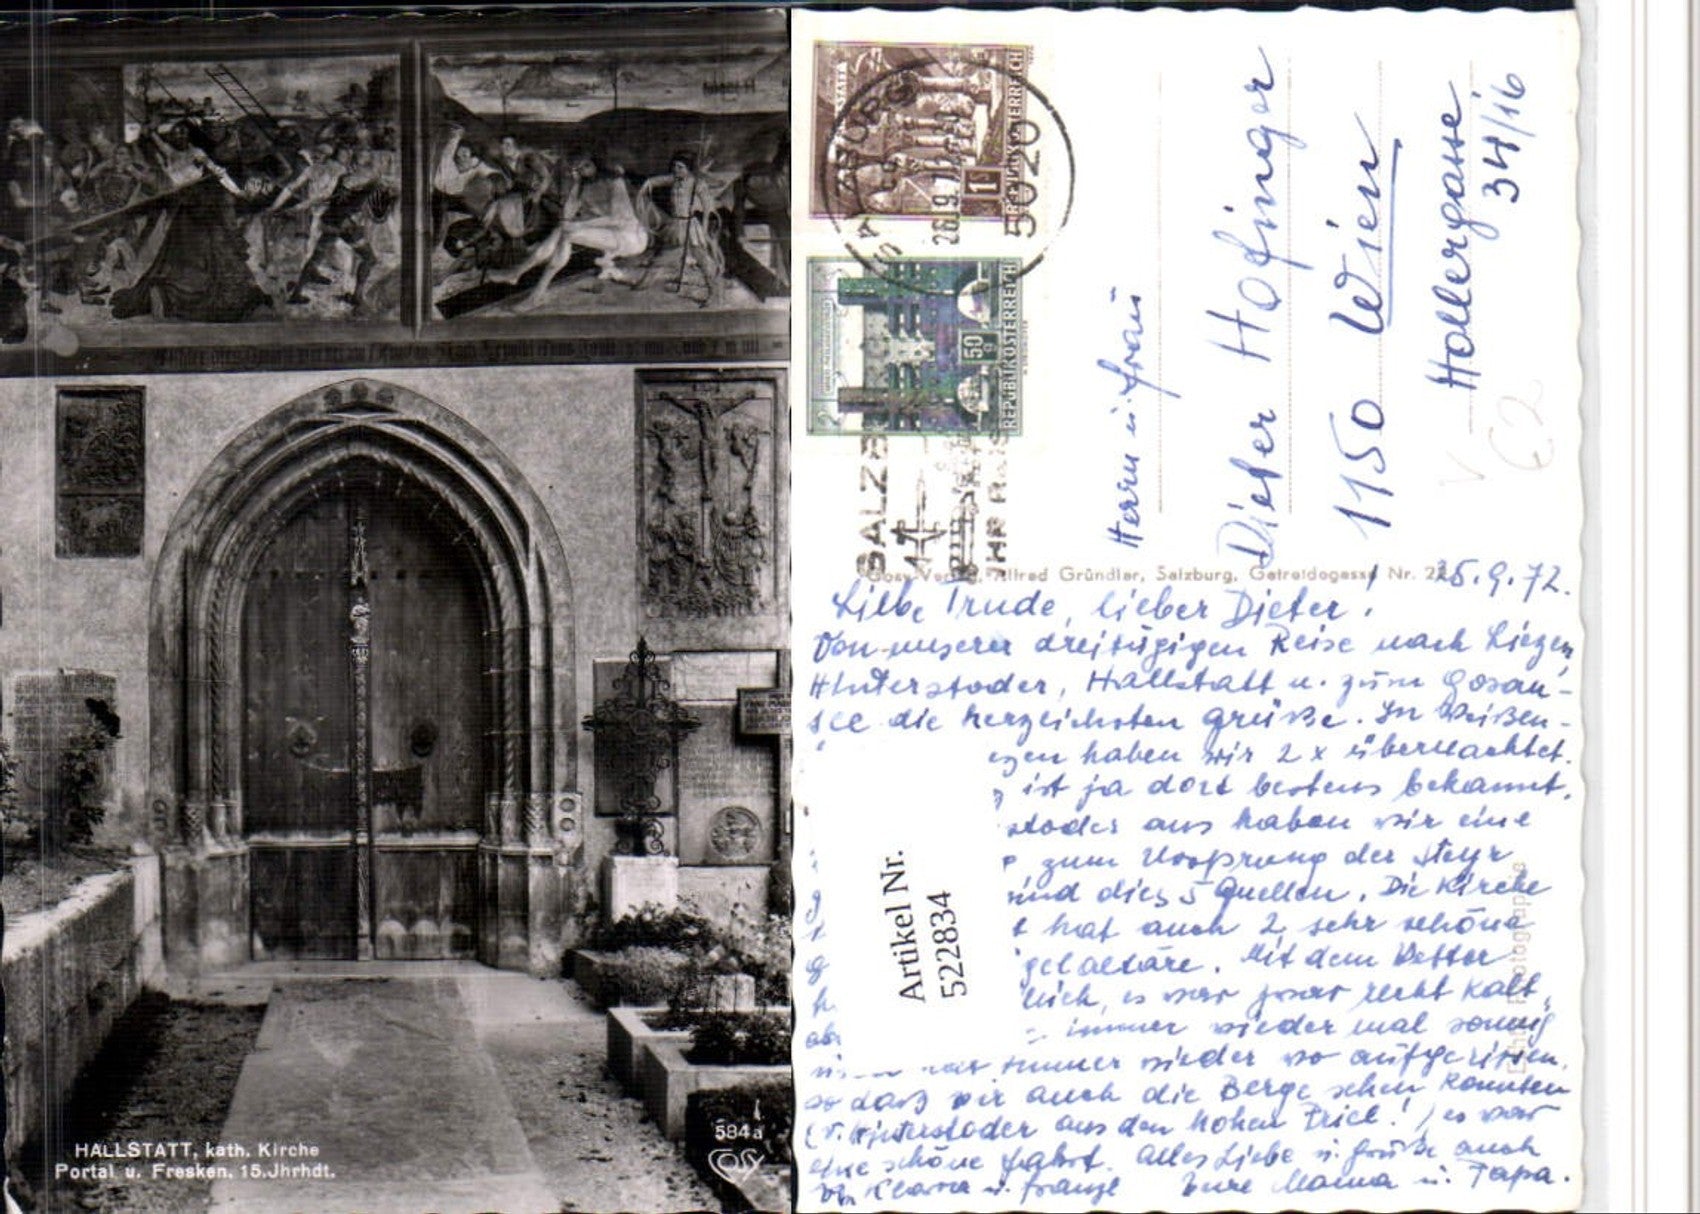 HALLSTATT, kath. Kirche
Portal u. Fresken, 15.Jhrhdt.
584a
COSY
REPUBLIK ÖSTERREICH
1
5020
REPUBLIK ÖSTERREICH
50 g
Herrn u. Frau
Dieter Hofinger
1150 Wien
Hollergasse
34/16
€2
Alfred Gründler, Salzburg, Getreidegasse Nr. 22
25.9.72.
Liebe Trude, lieber Dieter!
Von unserer dreitägigen Reise nach Liezen,
Hinterstoder, Hallstatt u. zum Gosau-
see die herzlichsten Grüße. In Weißen-
haben wir 2 x übernachtet.
ist ja dort bestens bekannt.
stoder aus haben wir eine
zum Ursprung der Steyr
sind dies 5 Quellen. Die Kirche
hat auch 2 sehr schöne
gelaltäre. Mit dem Wetter
es war zwar recht kalt,
immer wieder mal sonnig
immer wieder so aufgerissen,
so daß wir auch die Berge sehen konnten
(v. Hinterstoder aus den Hohen Priel!) es war
eine schöne Fahrt. Alles Liebe u. Grüße auch
von u. Franzl Eure Mama u. Papa.
Artikel Nr.
522834